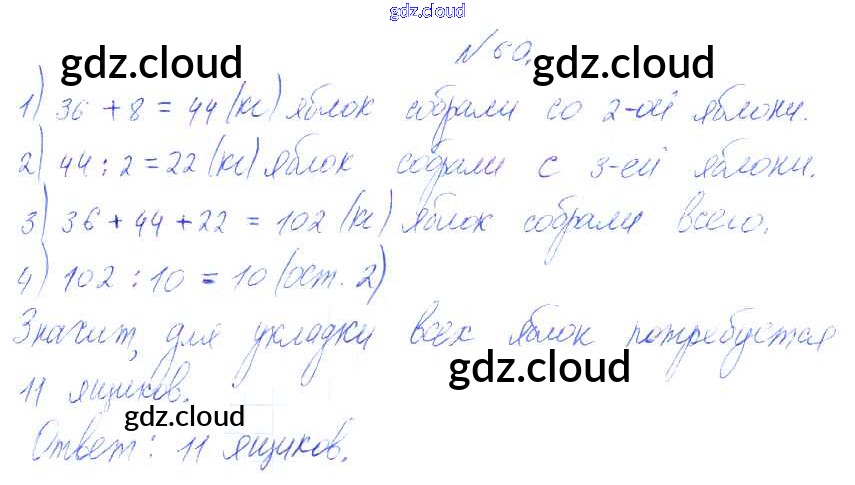 gdz.cloud
gdz.cloud №60. gdz.cloud
1) 36 + 8 = 44 (кг) яблок собрали со 2-ой яблони.
2) 44 : 2 = 22 (кг) яблок собрали с 3-ей яблони.
3) 36 + 44 + 22 = 102 (кг) яблок собрали всего.
4) 102 : 10 = 10 (ост. 2)
Значит, для укладки всех яблок потребуется
11 ящиков. gdz.cloud
gdz.cloud
Ответ: 11 ящиков.